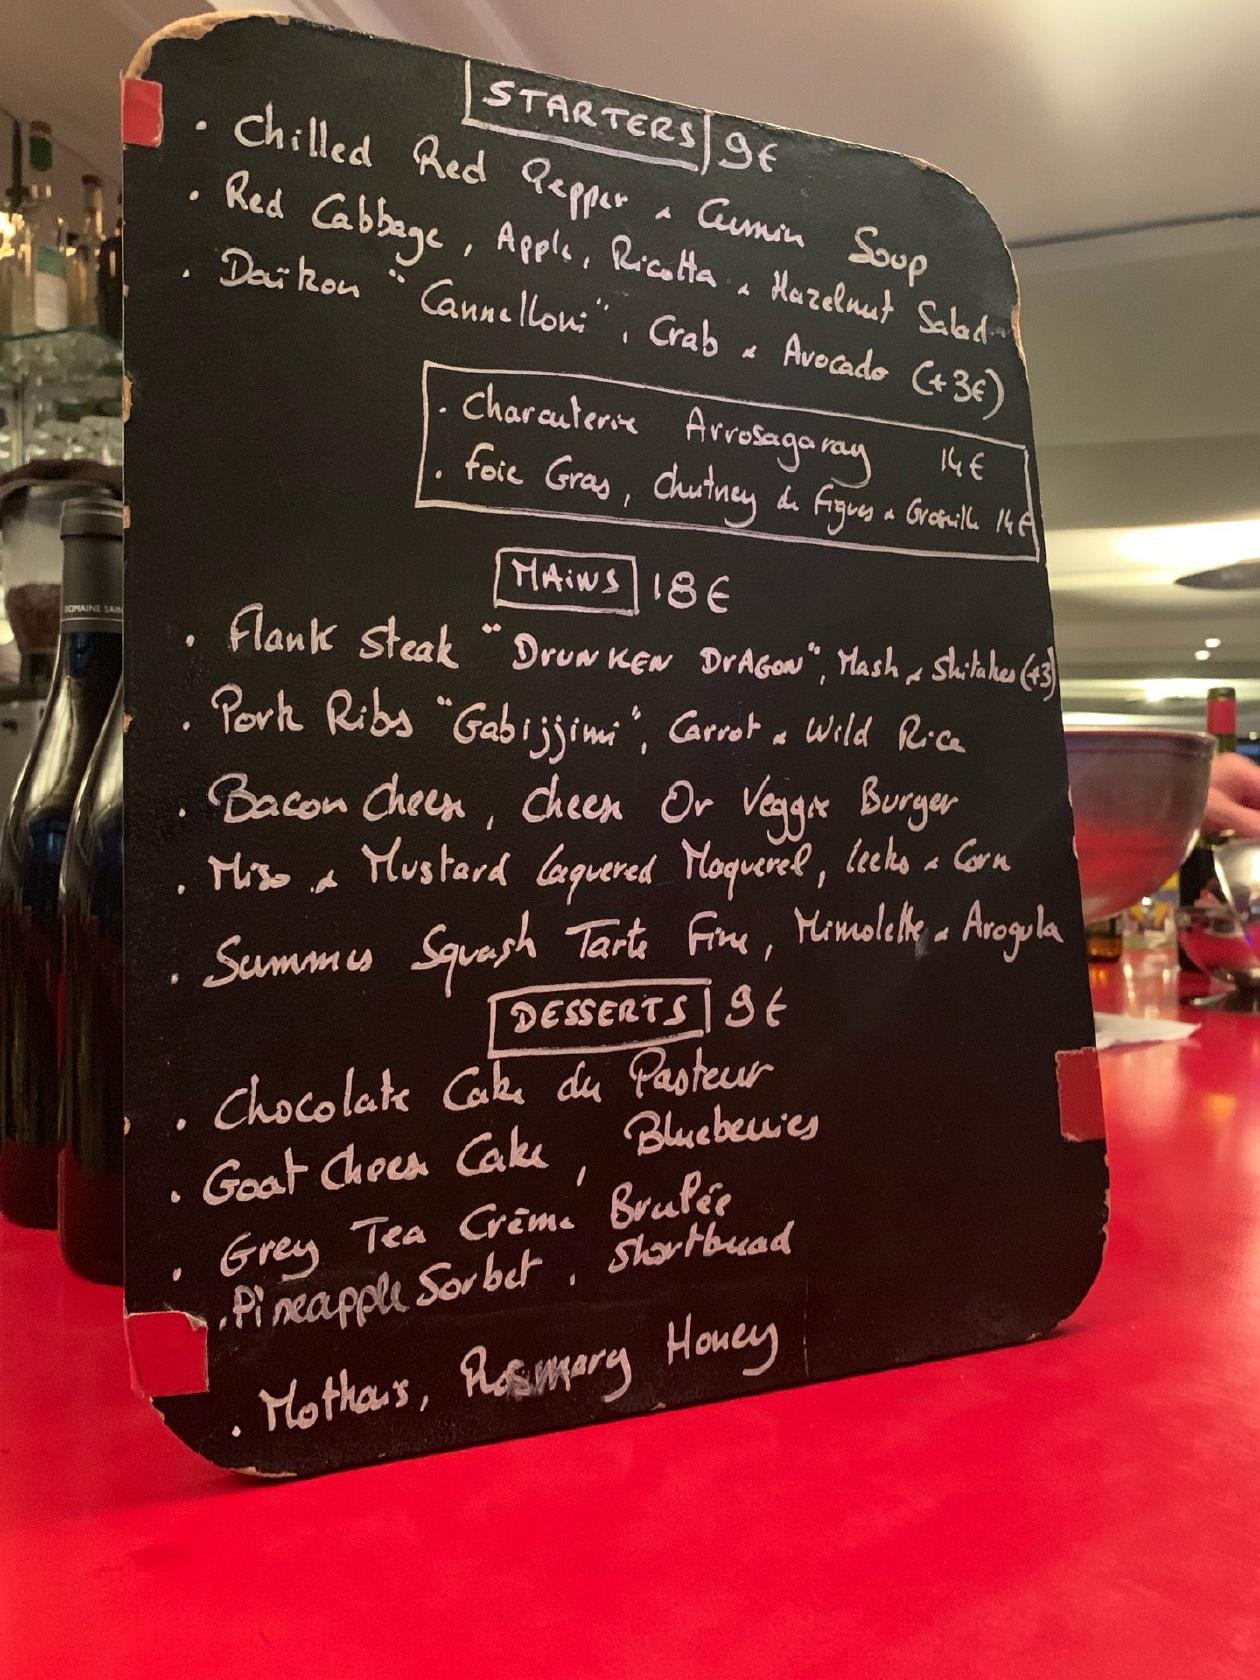 STARTERS 9€
· Chilled Red Pepper & Cumin Soup
· Red Cabbage, Apple, Ricotta & Hazelnut Salad
· Daïkon "Cannelloni", Crab & Avocado (+3€)
· Charcuterie Arrosagaray 14€
· Foie Gras, Chutney de Figues & Groseille 14€
MAiNS 18€
· Flank Steak "DRUNKEN DrAGON", Mash & Shitakes (+3)
· Pork Ribs "Galbijjimi", Carrot & Wild Rice
· Bacon Cheese, Cheese Or Veggie Burger
· Miso & Mustard Laquered Maquerel, Leeks & Corn
· Summer Squash Tarte Fine, Mimolette & Arogula
DESSERTS 9€
· Chocolate Cake du Pasteur
· Goat Cheese Cake, Blueberries
· Grey Tea Crème Brulée
· Pineapple Sorbet, Shortbread
· Mothais, Rosmary Honey
DOMAINE SAIN